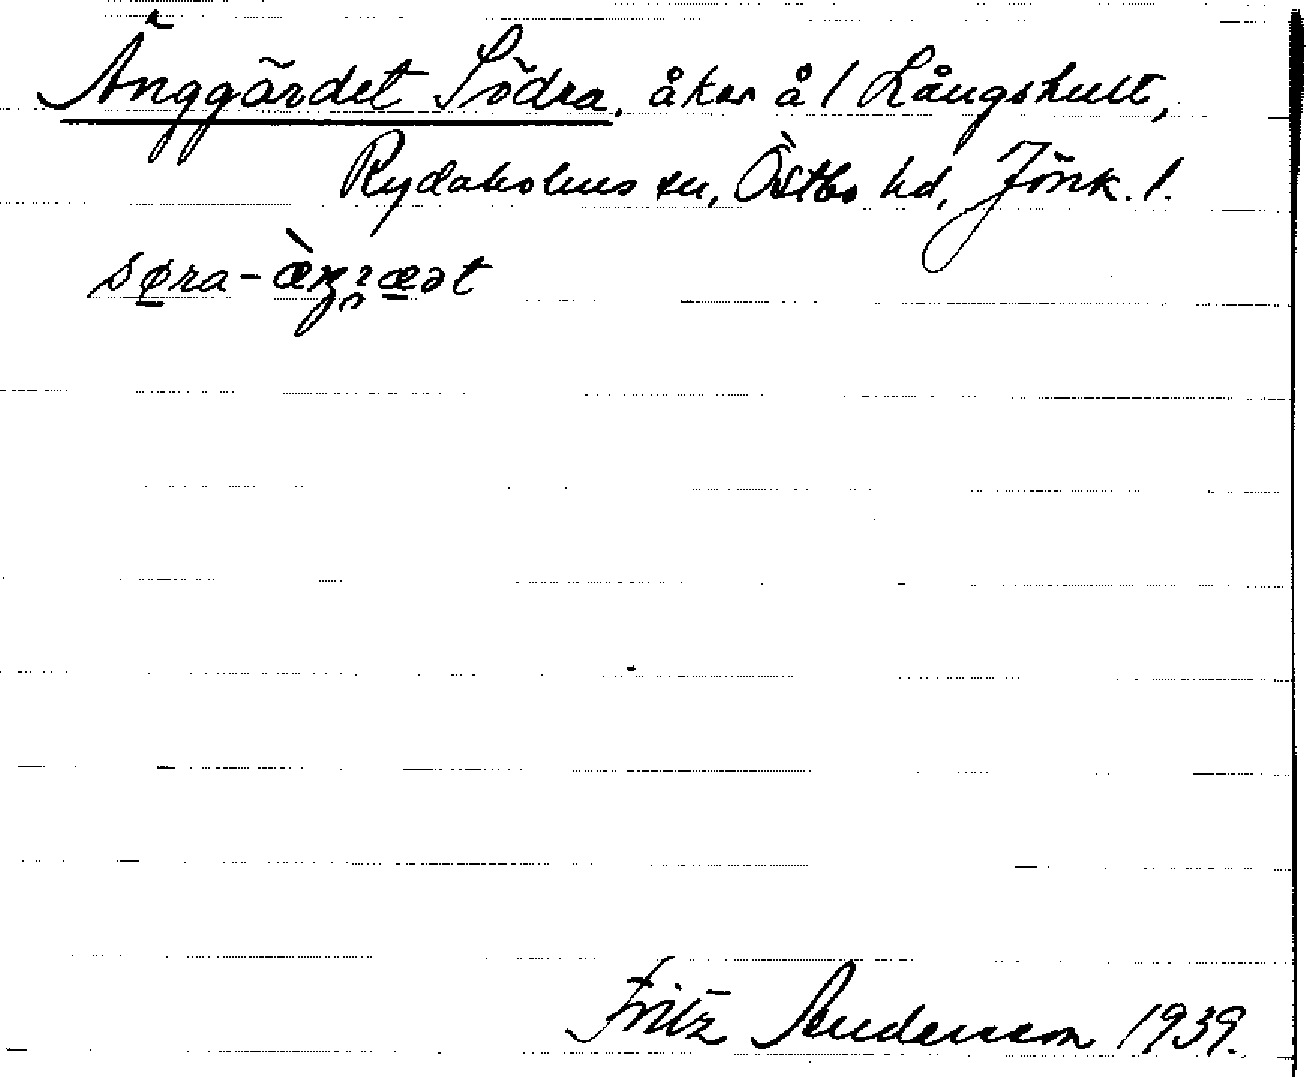 Änggärdet Södra, åker å / Långshult,
Rydaholms sn, Östbo hd, Jönk. l.
Fritz Andersson 1939.